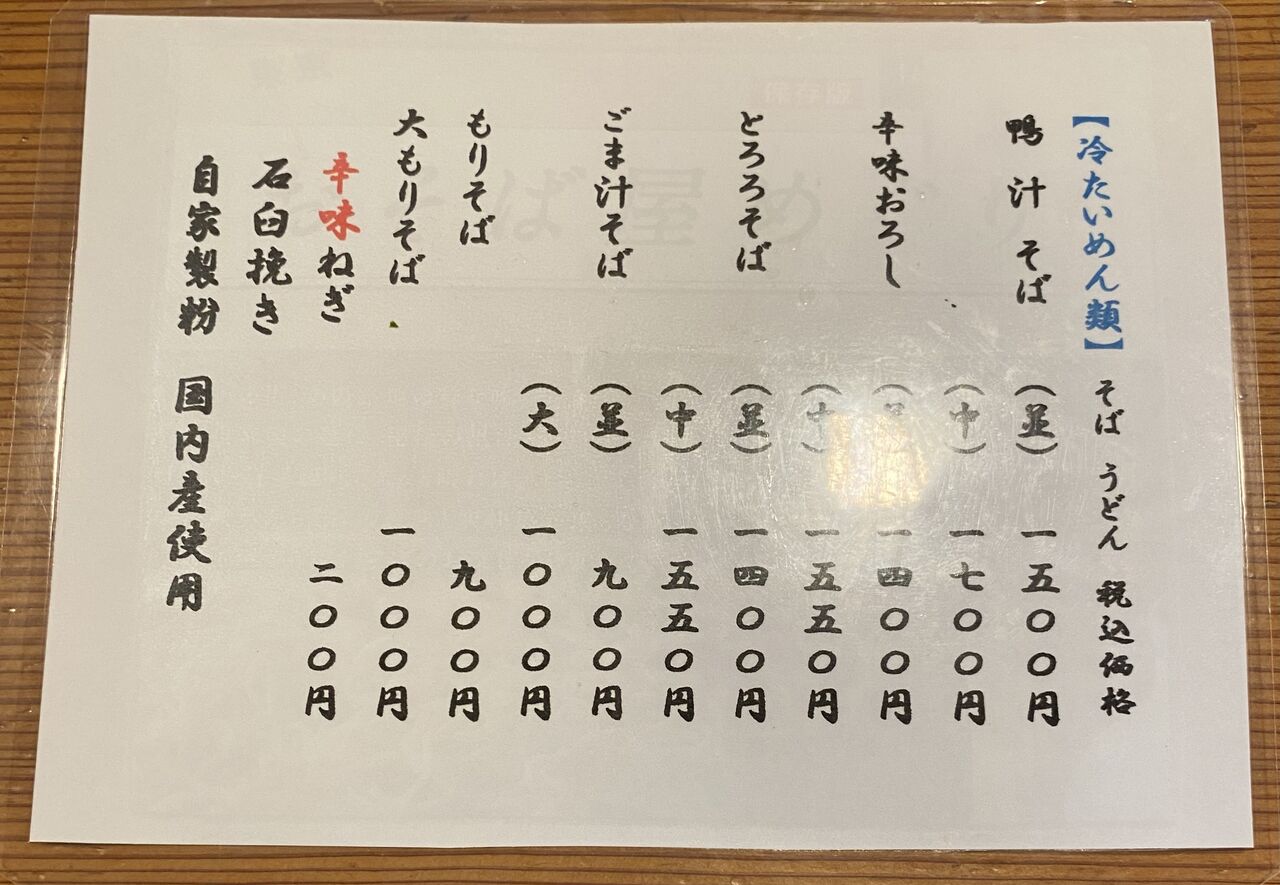 【冷たいめん類】 そば うどん 税込価格
鴨汁そば (並) 一五〇〇円
(中) 一七〇〇円
辛味おろし (並) 一四〇〇円
(中) 一五五〇円
とろろそば (並) 一四〇〇円
(中) 一五五〇円
ごま汁そば (並) 九〇〇円
(大) 一〇〇〇円
もりそば 九〇〇円
大もりそば 一〇〇〇円
辛味ねぎ 二〇〇円
石臼挽き
自家製粉 国内産使用